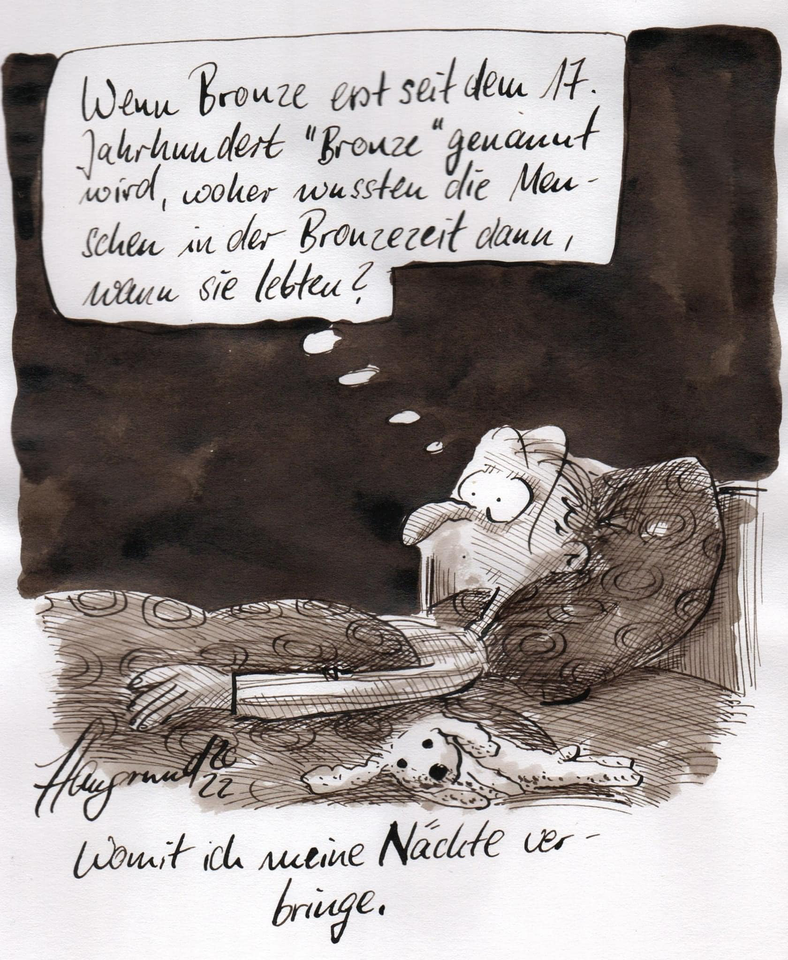 Wenn Bronze erst seit dem 17.
Jahrhundert "Bronze" genannt
wird, woher wussten die Men-
schen in der Bronzezeit dann,
wann sie lebten?
22
Womit ich meine Nächte ver-
bringe.